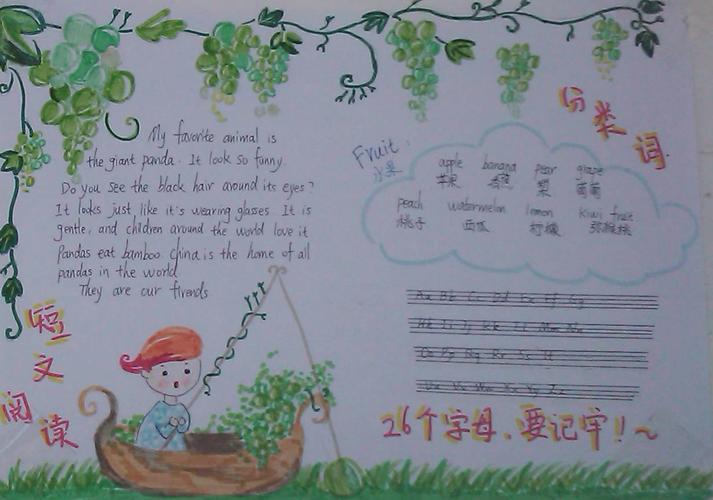 My favorite animal is
the giant panda. It look so funny.
Do you see the black hair around its eyes?
It looks just like it's wearing glasses. It is
gentle, and children around the world love it
Pandas eat bamboo. China is the home of all
pandas in the world
They are our firends
短文阅读
分类词
Fruit:
水果
apple banana pear grape
苹果 香蕉 梨 葡萄
peach watermelon lemon kiwi fruit
桃子 西瓜 柠檬 猕猴桃
Aa Bb Cc Dd Ee Ff Gg
Hh Ii Jj Kk Ll Mm Nn
Oo Pp Qq Rr Ss Tt
Uu Vv Ww Xx Yy Zz
26个字母、要记牢!~